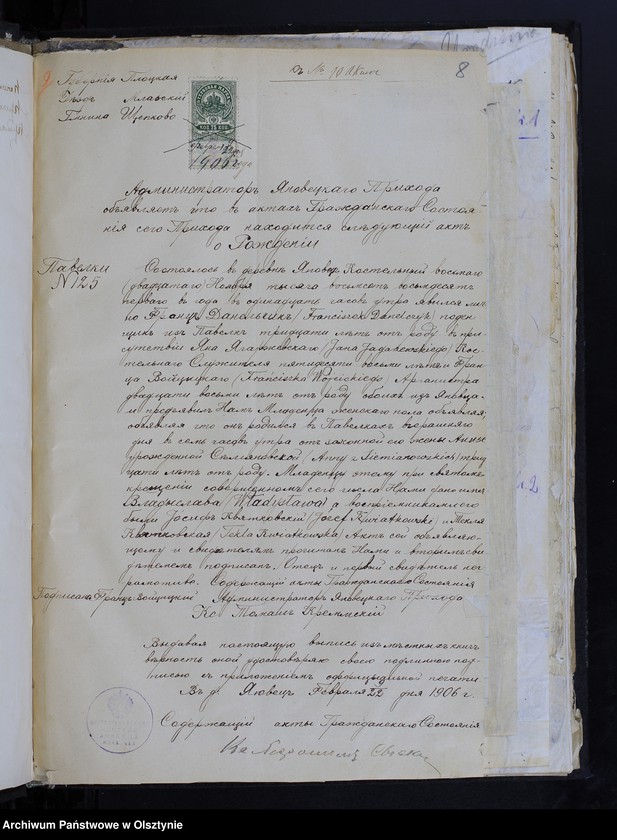 Губернія Плоцкая
Уѣздъ Млавскій
Гмина Щепково
къ № 10
8
КОП 75 КОП
1906 г
Администраторъ Яновецкаго Прихода
объявляетъ что въ актахъ Гражданскаго Состоя-
нія сего Прихода находится слѣдующій актъ
о Рожденіи
Павелки
N 125
Состоялось въ деревнѣ Яновецъ Костельный восьмаго
(двадцатаго) Ноября тысяча восемьсотъ восемьдесятъ
перваго года въ одинадцать часовъ утра явился лич
но Францъ Данельчикъ (Franciszek Danelczyk) поден
щикъ изъ Павелкъ тридцати лѣтъ отъ роду въ при
сутствіи Яна (Jana) Кос-
тельнаго Служителя пятидесяти восьми лѣтъ и Фран
ца Войцицкаго (Franciszka Wojcickiego) Арганиста
двадцати восьми лѣтъ отъ роду обоихъ изъ Яновца
и предъявилъ Намъ Младенца женскаго пола объявляя
объявляя что онъ родился въ Павелкахъ вчерашняго
дня въ семь часовъ утра отъ законной его жены Анны
урожденной (Anny z) трид
цати лѣтъ отъ роду. Младенцу этому при святомъ
крещеніи совершенномъ сего числа Нами дано имя
Владыслава (Władysława) а воспріемниками его
были Іосифъ Квятковскій (Józef Kwiatkowski) и Текля
Квятковская (Tekla Kwiatkowska) Актъ сей объявляю-
щему и свидѣтелямъ прочитанъ Нами и вторымъ сви
дѣтелемъ подписанъ. Отецъ и первый свидѣтель не
грамотны. Содержащій акты Гражданскаго Состоянія
Подписалъ Францъ Войцицкій Администраторъ Яновецкаго Прихода
Кс Томашъ Кремпскій
Выдавая настоящую выпись изъ мѣстныхъ книгъ
вѣрность оной удостовѣряю своею подлинною под-
писью съ приложеніемъ оффиціальной печати
Въ д. Яновецъ Февраля 22 дня 1906 г.
Содержащій акты Гражданскаго Состоянія
Archiwum Państwowe w Olsztynie